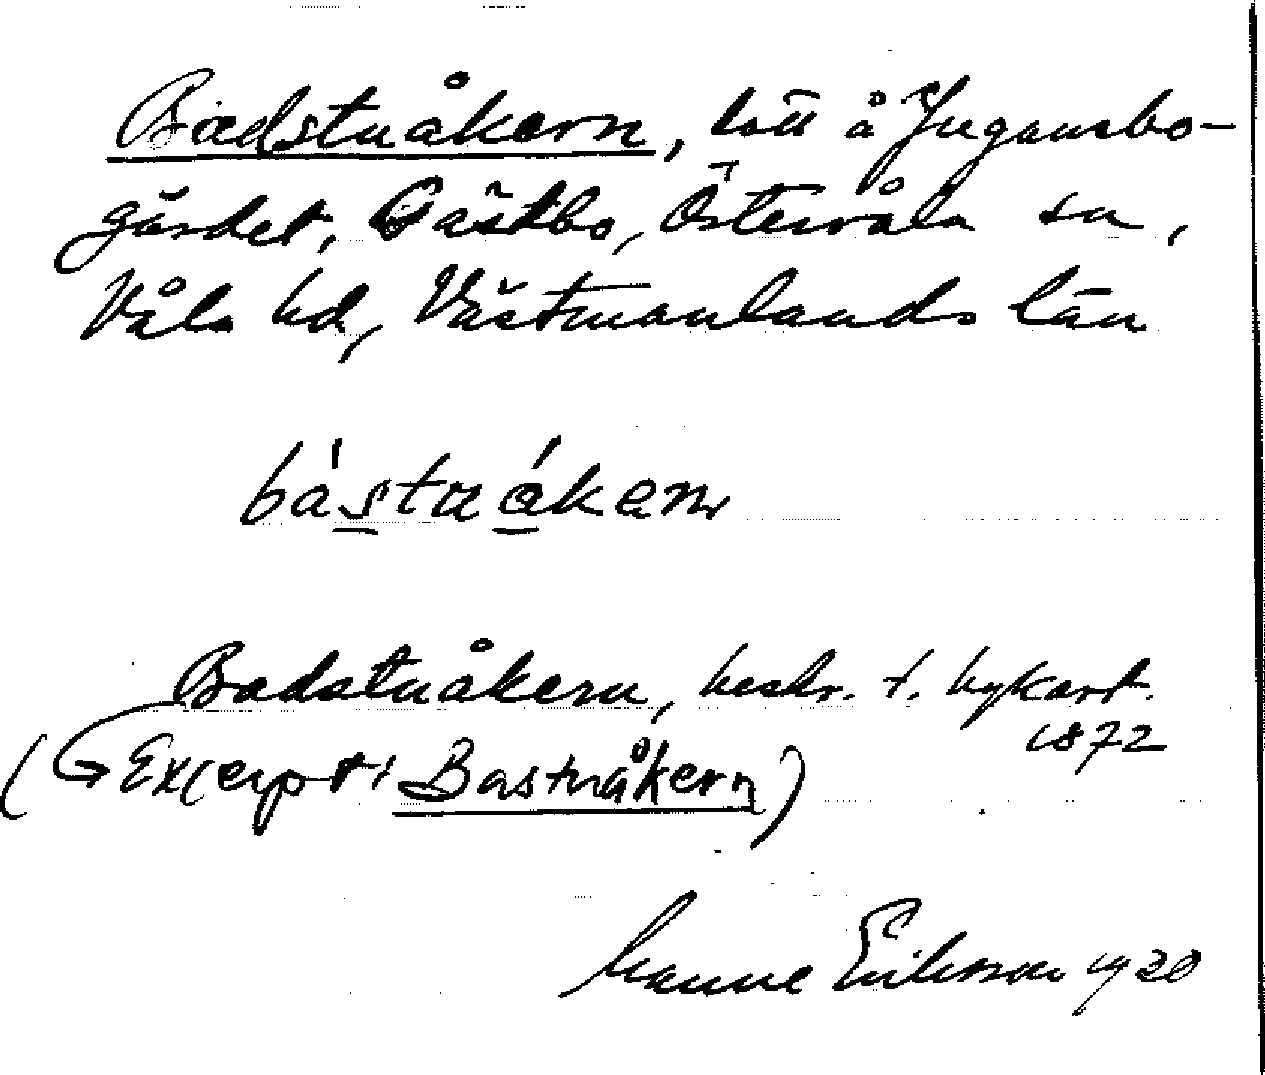 Badstuåkern, lott å Jugansbo-
gärdet, Gästbo, Östervåla sn,
Våla hd, Västmanlands län
bástuåkern
Badstuåkern, beskr. t. bykart.
1872
(Excerpt: Bastuåkern)
Manne Eriksson 1920